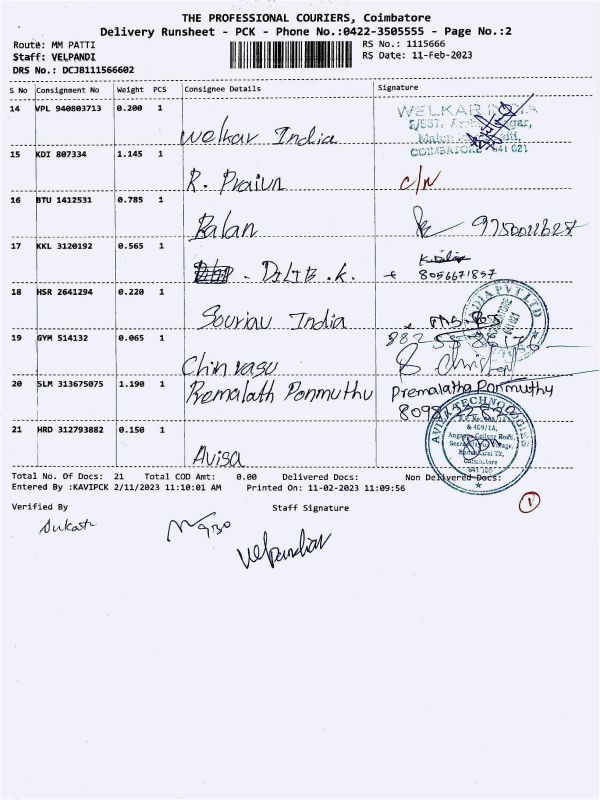 THE PROFESSIONAL COURIERS, Coimbatore
Delivery Runsheet - PCK - Phone No.:0422-3505555 - Page No.:2
Route: MM PATTI
RS No.: 1115666
Staff: VELPANDI
RS Date: 11-Feb-2023
DRS No.: DCJ8111566602
S No Consignment No Weight PCS Consignee Details Signature
14 VPL 940803713 0.200 1 Welkar India WELKAR INDIA
COIMBATORE 641 021
15 KDI 807334 1.145 1 R. Praiun C/N
16 BTU 1412531 0.785 1 Balan 9750011627
17 KKL 3120192 0.565 1 - DILIB .K. 8056671857
18 HSR 2641294 0.220 1 Souriau India
INDIA PVT LTD
COIMBATORE 641 021
19 GYM 514132 0.065 1 Chinvasu
20 SLM 313675075 1.190 1 Premalath Ponmuthu Premalatha Ponmuthy
21 HRD 312793882 0.150 1 Avisa
& 409/1A,
Coimbatore
641 105
Total No. Of Docs: 21 Total COD Amt: 0.00 Delivered Docs: Non Delivered Docs:
Entered By :KAVIPCK 2/11/2023 11:10:01 AM Printed On: 11-02-2023 11:09:56
1
Verified By Staff Signature
velpandiar